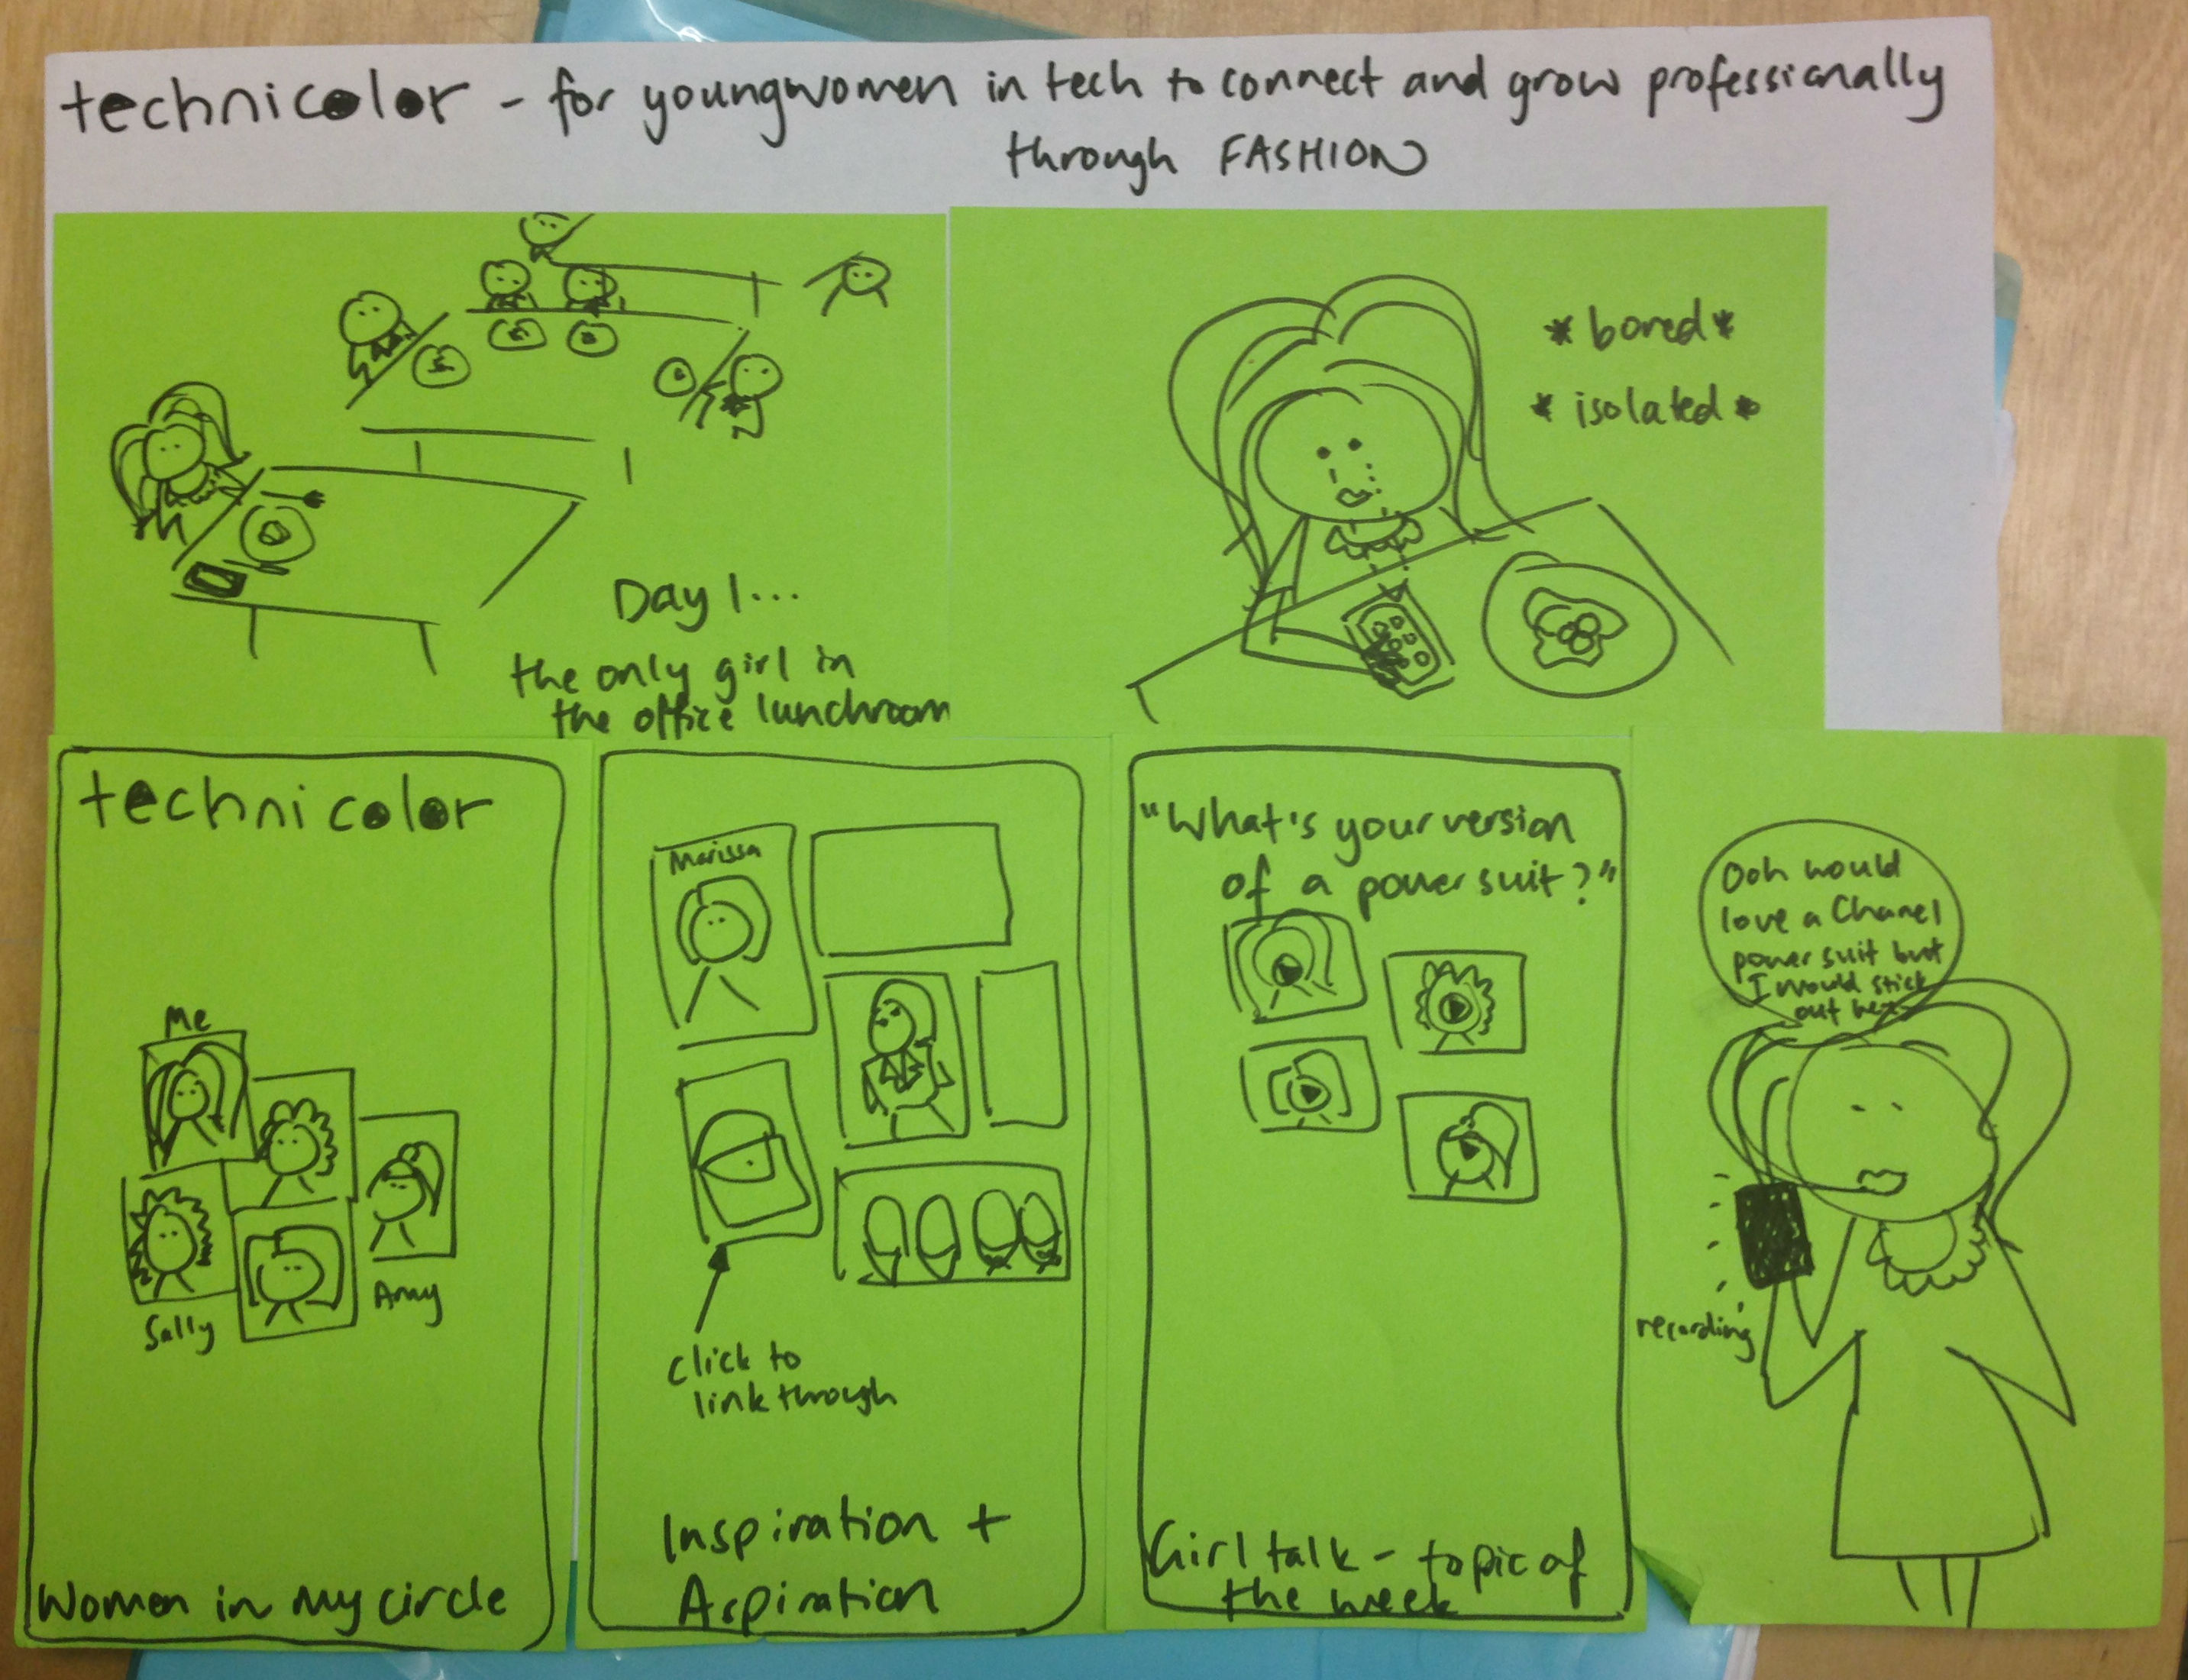 technicolor - for youngwomen in tech to connect and grow professionally
through FASHION
Day 1...
the only girl in
the office lunchroom
*bored*
*isolated*
technicolor
Me
Sally
Amy
Women in My circle
Marissa
click to
link through
Inspiration +
Aspiration
"What's your version
of a power suit?"
Girl talk - topic of
the week
Ooh would
love a Chanel
power suit but
I would stick
out here
recording